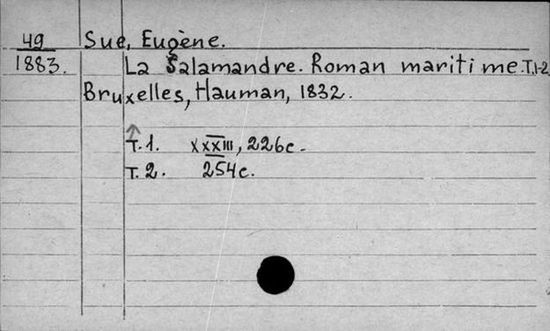 49 Sue, Eugène.
1883. La Salamandre. Roman maritime. T.1-2
Bruxelles, Hauman, 1832.
T. 1. XXXIII, 226c.
T. 2. 254c.